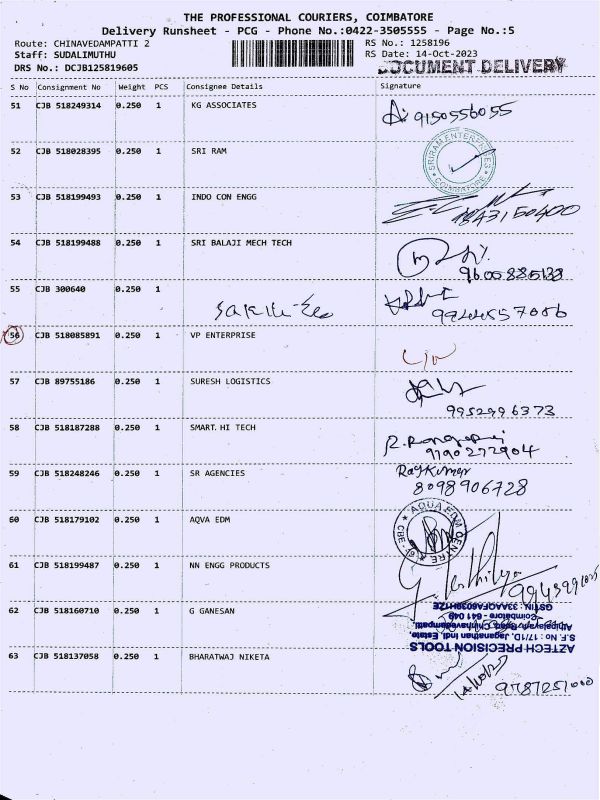 THE PROFESSIONAL COURIERS, COIMBATORE
Delivery Runsheet - PCG - Phone No.:0422-3505555 - Page No.:5
Route: CHINAVEDAMPATTI 2 RS No.: 1258196
Staff: SUDALIMUTHU RS Date: 14-Oct-2023
DRS No.: DCJB125819605 DOCUMENT DELIVERY
S No Consignment No Weight PCS Consignee Details Signature
51 CJB 518249314 0.250 1 KG ASSOCIATES 9150556055
52 CJB 518028395 0.250 1 SRI RAM SRIRAM ENTERPRISES COIMBATORE
53 CJB 518199493 0.250 1 INDO CON ENGG
54 CJB 518199488 0.250 1 SRI BALAJI MECH TECH
55 CJB 300640 0.250 1
56 CJB 518085891 0.250 1 VP ENTERPRISE
57 CJB 89755186 0.250 1 SURESH LOGISTICS
9952996373
58 CJB 518187288 0.250 1 SMART. HI TECH
9190272904
59 CJB 518248246 0.250 1 SR AGENCIES Rajkumar
8098906728
60 CJB 518179102 0.250 1 AQVA EDM AQUA EDM CENTRE
61 CJB 518199487 0.250 1 NN ENGG PRODUCTS
62 CJB 518160710 0.250 1 G GANESAN
AZTECH PRECISION TOOLS
S.F. No : 17/1D, Jaganathan Indl. Estate,
Coimbatore - 641 049
63 CJB 518137058 0.250 1 BHARATWAJ NIKETA
9787251000